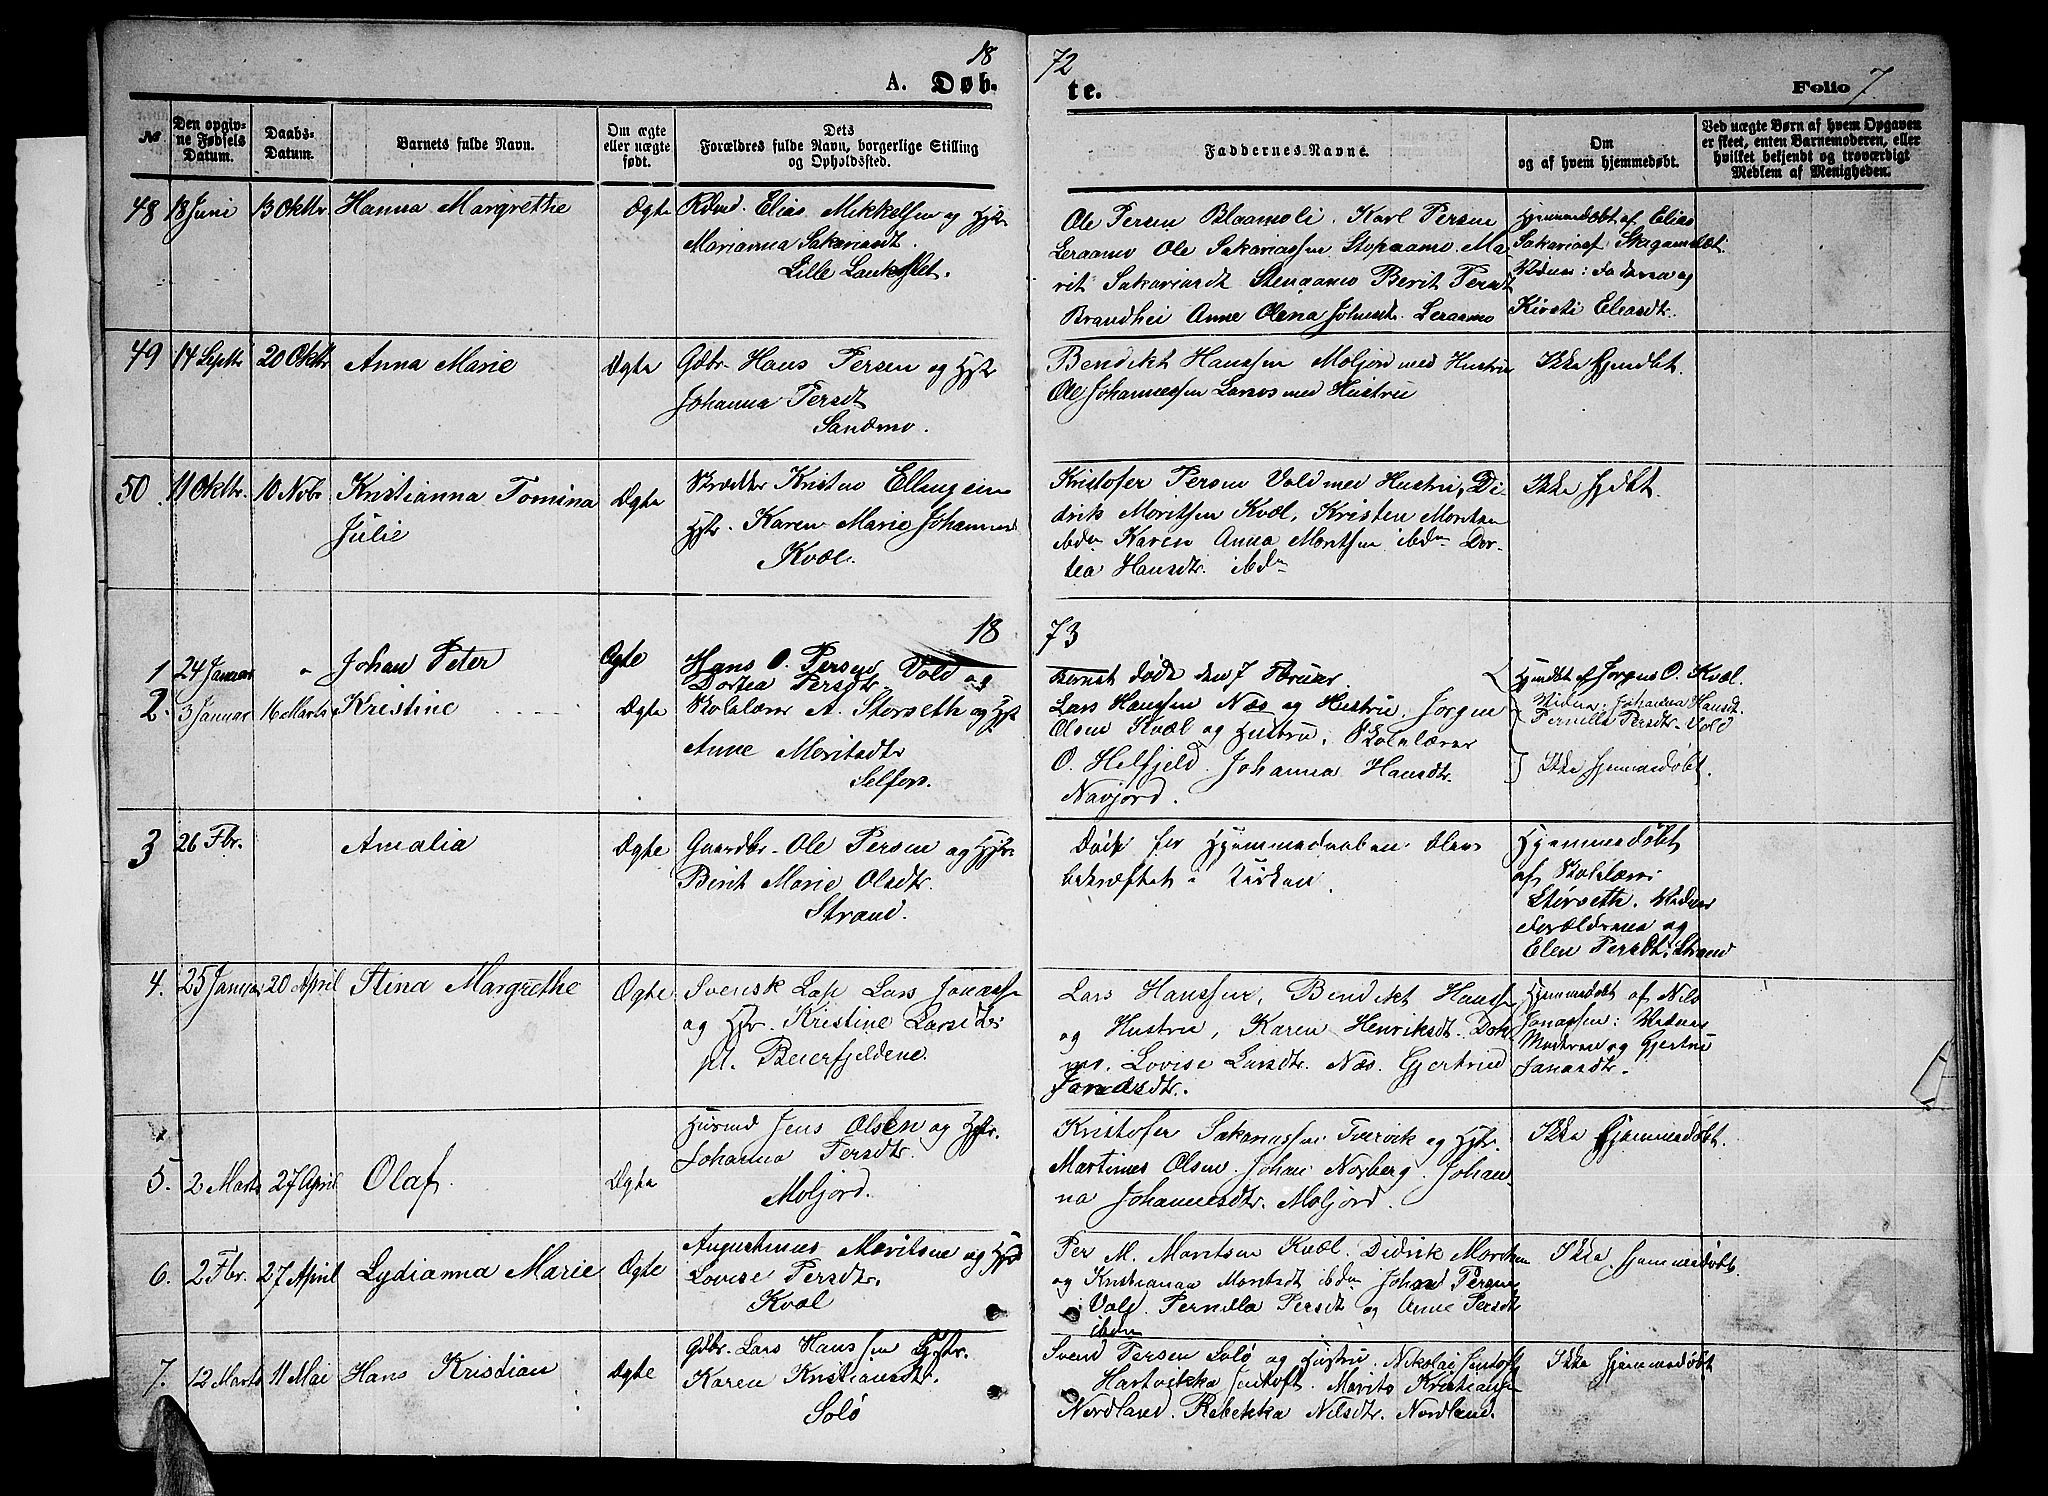 18 72
A. Døb. te. Folio 7
№
Den opgivne Fødsels Datum.
Daabs-Datum.
Barnets fulde Navn.
Om ægte eller uægte født.
Dets Forældres fulde Navn, borgerlige Stilling og Opholdssted.
Faddernes Navne.
Om og af hvem hjemmedøbt.
Ved uægte Børn af hvem Opgaven er skeet, enten Barnemoderen, eller hvilket bekjendt og troværdigt Medlem af Menigheden.
48 18 Juni 13 Oktbr Hanna Margrethe Ægte
Elias Mikkelsen og Hstr
Marianna Sakariasdt.
Lille
Ole Persen Blaamoli. Karl Persen
Leraamo Ole Sakariassen Stopaamo Ma-
rit Sakariasdt Stenaamo Berit Persdt
Brandhei Anne Olena Leraamo
Hjemmedøbt af Elias
Sakariass
Vidner: Faderen og
Kirsti Eleasdtr.
49 14 Septbr 20 Oktbr Anna Marie Ægte
Gdbr. Hans Persen og Hstr
Johanna Persdt
Sandmo.
Bendikt Hanssen Moljord med Hustru
Ole Johannessen Larsos med Hustru
Ikke Hjemdbt.
50 11 Oktbr. 10 Nobr Kristianna Tomina
Julie
Ægte
Kristen Ellingsen
Hstr. Karen Marie Johannesd
Kvæl.
Kristofer Persen Vold med Hustru, Di-
drik Moritsen Kvæl, Kristen Moritsen
ibdn Karen Anna Moritsen ibdn Dor-
tea Hansdtr. ibdn
Ikke hjdbt.
18 73
1 24 Januar " Johan Peter Ægte
Hans O. Persen Vold og
Dortea Persdtr
Barnet døde den 7 Februar
Hjmdbt af Jørgen O. Kvæl.
Vidner: Johanna Hansdt.
Pernille Persdtr Vold
2. 3 Januar 16 Marts Kristine Ægte
Skolelærer A. Storseth og Hstr
Anne Moritsdtr
Selfors.
Lars Hanssen Næs og Hustru. Jørgen
Olsen Kvæl og Hustru, Skolelærer
O. Helfjeld. Johanna Hansdtr.
Navjord.
Ikke hjemmedøbt.
3 26 Fbr. Amalia Ægte
Gaardbr. Ole Persen og Hstr
Berit Marie Olsdtr.
Strand.
Døde før Hjemmedaaben blev
bekræftet i Kirken.
Hjemmedøbt
af Skolelærer
Storseth. Vidner
Forældrene og
Elen Persdt. Strand
4. 25 Januar 20 April Stina Margrethe Ægte
Svensk Lap Lars Jonassen
og Hstr. Kristine Larsdtr
pt. Beierfjeldene.
Lars Hanssen, Bendikt Hanss-
og Hustru, Karen Henriksdt.
Lovise Larsdtr. Næs. Gjertrud
Jonasdtr.
Hjemmedøbt af Nils
Jonassen: Vidner
Moderen og Gjertru
Jonasdtr.
5. 2 Marts 27 April Olaf Ægte
Husmd Jens Olsen og Hstr.
Johanna Persdtr.
Moljord.
Kristofer Sakariassen Tvervik og Hstr.
Martines Olsen. Johan Norberg. Johan-
na Johannesdtr. Moljord.
Ikke hjemmedøbt.
6. 2 Fbr. 27 April Lydianna Marie Ægte
Augustinus Moritsen og Hstr
Lovise Persdtr.
Kvæl
Per M. Moritsen Kvæl. Didrik Moritsen
og Kristianna Moritsdt ibdn Johan Persen
Vold. Pernilla Persdt og Anne Persdt
ibdn
Ikke hjemmedøbt.
7. 12 Marts 11 Mai Hans Krisdian Ægte
Gdbr. Lars Hanssen Hstr.
Karen Kristiansdtr.
Solø
Svend Persen Solø og Hustru. Nikolai Jentoft
Hartvikka Jentoft. Morits Kristiansen
Nordland. Rebekka Nilsdtr. Nordland.
Ikke hjemmedøbt